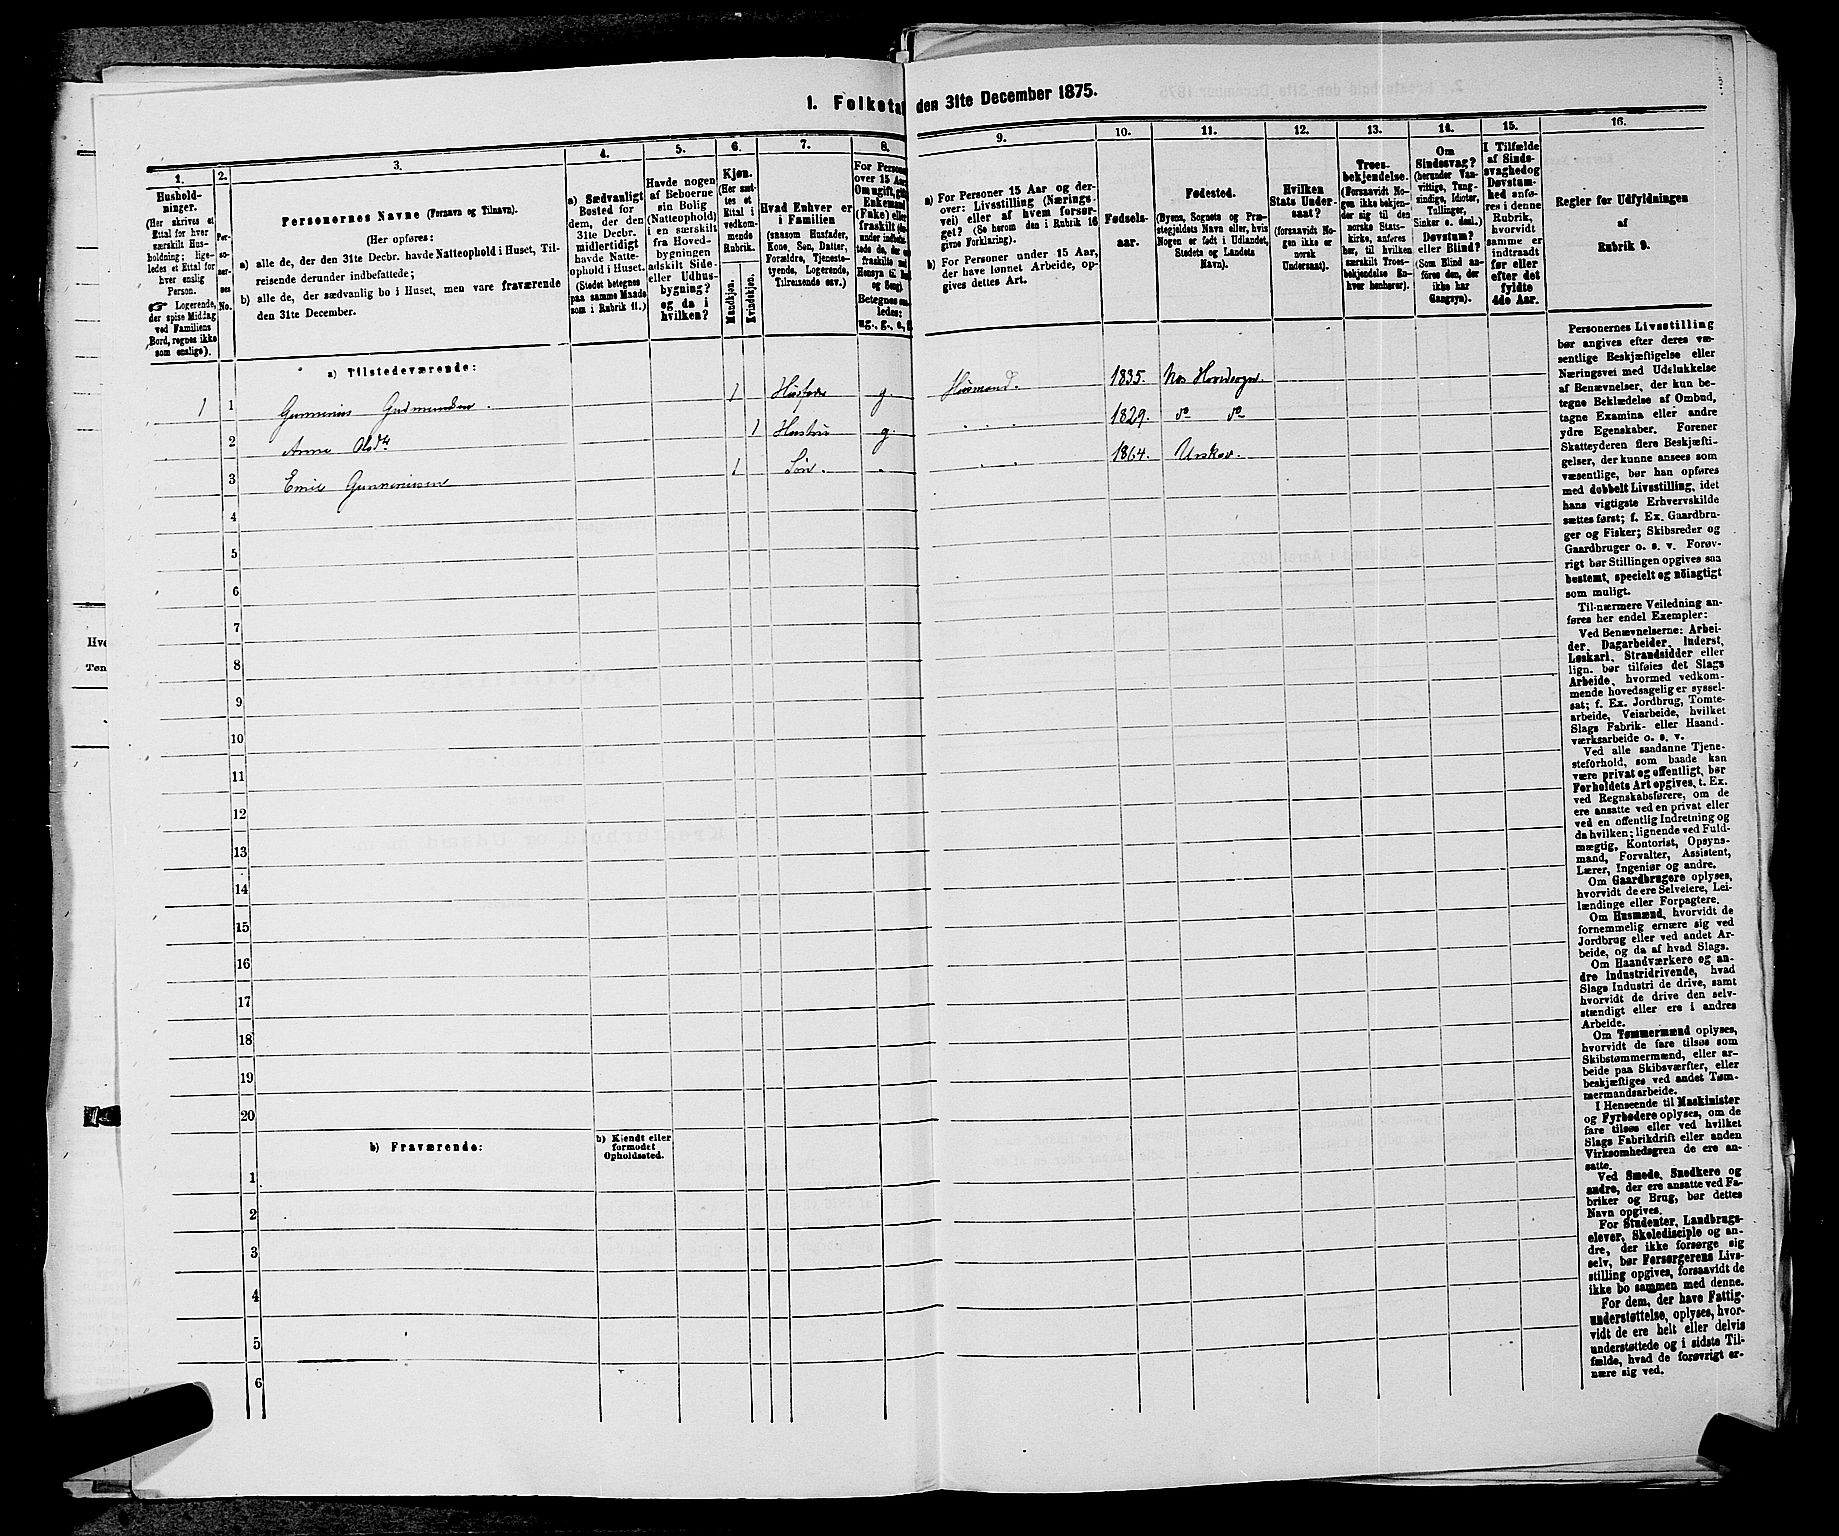 1. Folketal den 31te December 1875.
1.
Hushold-
ninger.
(Her skrives et
Ettal for hver
særskilt Hus-
holdning; lige-
ledes et Ettal for
hver enslig
Person.
Logerende,
der spise Middag
ved Familiens
Bord, regnes ikke
som enslige).
2.
Per-
so-
ner-
nes
No.
3.
Personernes Navne (Fornavn og Tilnavn).
(Her opføres:
a) alle de, der den 31te Decbr. havde Natteophold i Huset, Til-
reisende derunder indbefattede;
b) alle de, der sædvanlig bo i Huset, men vare fraværende
den 31te December.
4.
a) Sædvanligt
Bosted for
dem, der den
31te Decbr.
midlertidigt
havde Natte-
ophold i Huset.
(Stedet betegnes
paa samme Maade
som i Rubrik 11.)
5.
Havde nogen
af Beboerne
sin Bolig
(Natteophold)
i en særskilt
fra Hoved-
bygningen
adskilt Side-
eller Udhus-
bygning?
og da i
hvilken?
6.
Kjøn.
(Her sæt-
tes et
Ettal i
vedkom-
mende
Rubrik.
Mandkjøn.
Kvindekjøn.
7.
Hvad Enhver er
i Familien
(saasom Husfader,
Kone, Søn, Datter,
Forældre, Tjeneste-
tyende, Logerende,
Tilreisende osv.)
8.
For Personer
over 15 Aar:
Om ugift, gift,
9.
a) For Personer 15 Aar og der-
over: Livsstilling (Nærings-
vei) eller af hvem forsør-
get? (Se herom den i Rubrik 16
givne Forklaring).
b) For Personer under 15 Aar,
der have lønnet Arbeide, op-
gives dettes Art.
10.
Fødsels-
aar.
11.
Fødested.
(Byens, Sognets og Præ-
stegjeldets Navn eller, hvis
Nogen er født i Udlandet,
Stedets og Landets
Navn).
12.
Hvilken
Stats Under-
saat?
(forsaavidt No-
gen ikke er
norsk
Undersaat).
13.
Troes-
bekjendelse.
(Forsaavidt No-
gen ikke bekjen-
der sig til den
norske Stats-
kirke, anføres
her, til hvilken
særskilt Troes-
bekjendelse En-
hver henhører).
14.
Om
Sindssvag?
(herunder Van-
vittige, Tung-
sindige, Idioter,
Tullinger,
Sinker o. desl.)
Døvstum?
eller Blind?
(Som Blind an-
føres den, der
ikke har
Gangsyn).
15.
I Tilfælde
af Sinds-
svaghed og
Døvstum-
hed anfø-
res i denne
Rubrik,
hvorvidt
samme er
indtraadt
før eller
efter det
fyldte
4de Aar.
16.
Regler for Udfyldningen
af
Rubrik 9.
a) Tilstedeværende:
1 1 Gunnerius Gudmundsen. 1 Husfader g. Husmand. 1835. Næs Hovedsogn.
2 Anne Olsdtr 1 Hustru g. " " " 1829. do do
3 Emil Gunneriusen 1 Søn. " " " " 1864. Urskov.
4
5
6
7
8
9
10
11
12
13
14
15
16
17
18
19
20
b) Fraværende:
b) Kjendt eller
formodet
Opholdssted.
1
2
3
4
5
6
Personernes Livsstilling
bør angives efter deres væ-
sentlige Beskjæftigelse eller
Næringsvei med Udelukkelse
af Benævnelser, der kun be-
tegne Beklædelse af Ombud,
tagne Examina eller andre
ydre Egenskaber. Forener
Skatteyderen flere Beskjæfti-
gelser, der kunne ansees som
væsentlige, bør han opføres
med dobbelt Livsstilling, idet
hans vigtigste Erhvervskilde
sættes først; f. Ex. Gaardbru-
ger og Fisker; Skibsreder og
Gaardbruger o. s. v. Forøv-
rigt bør Stillingen opgives saa
bestemt, specielt og nöiagtigt
som muligt.
Til nærmere Veiledning an-
føres her endel Exempler:
Ved Benævnelserne: Arbei-
der, Dagarbeider, Inderst,
Løskarl, Strandsidder eller
lign. bør tilføies det Slags
Arbeide, hvormed vedkom-
mende hovedsagelig er syssel-
sat; f. Ex. Jordbrug, Tomte-
arbeide, Veiarbeide, hvilket
Slags Fabrik- eller Haand-
værksarbeide o. s. v.
Ved alle saadanne Tjene-
steforhold, som baade kan
være privat og offentligt, bør
Forholdets Art opgives, t. Ex.
ved Regnskabsførere, om de
ere ansatte ved en privat eller
ved en offentlig Indretning og
da hvilken; lignende ved Fuld-
mægtig, Kontorist, Opsyns-
mand, Forvalter, Assistent,
Lærer, Ingeniør og andre.
Om Gaardbrugere oplyses,
hvorvidt de ere Selveiere, Lei-
lændinge eller Forpagtere.
Om Husmænd, hvorvidt de
fornemmelig ernære sig ved
Jordbrug eller ved andet Ar-
beide, og da af hvad Slags.
Om Haandværkere og an-
dre Industridrivende, hvad
Slags Industri de drive, samt
hvorvidt de drive den selv-
stændigt eller ere i andres
Arbeide.
Om Tømmermænd oplyses,
hvorvidt de fare tilsøs som
Skibstømmermænd, eller ar-
beide paa Skibsværfter, eller
beskjæftiges ved andet Tøm-
mermandsarbeide.
I Henseende til Maskinister
og Fyrbødere oplyses, om de
fare tilsøs eller ved hvilket
Slags Fabrikdrift eller anden
Virksomhedsgren de ere an-
satte.
Ved Smede, Snedkere og
andre, der ere ansatte ved Fa-
briker og Brug, bør dettes
Navn opgives.
For Studenter, Landbrugs-
elever, Skoledisciple og an-
dre, der ikke forsørge sig
selv, bør Forsørgerens Livs-
stilling opgives, forsaavidt de
ikke bo sammen med denne.
For dem, der have Fattig-
understøttelse, oplyses, hvor-
vidt de ere helt eller delvis
understøttede og i sidste Til-
fælde, hvad de forøvrigt er-
nære sig ved.